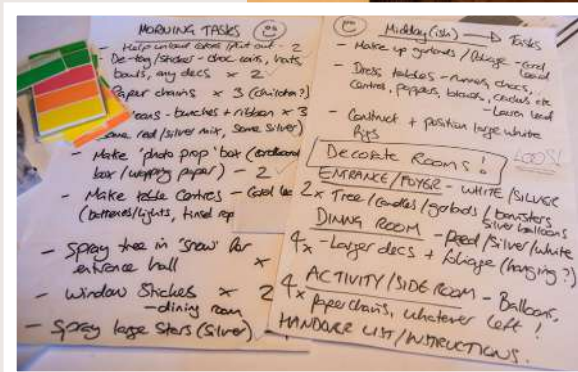 MORNING TASKS
- Help unload
put out - 2
De-tag/sticker - choc coins, hats
bowls, any decs x 2
Paper chains x 3 (children?)
bunches + ribbon x 3
some red/silver mix, some silver)
- Make 'photo prop' box (cardboard
box/wrapping paper) - 2
- Make table centres - Carol
(batteries/lights, tinsel
- Spray tree in 'snow' for
entrance hall x
- Window Stickies x 2
- dining room
- Spray large stars (silver)
Midday(ish) Tasks
- Make up garlands / foliage - Carol
Lead
- Dress tables - runners, chocs,
centres, poppers, blowers, crackers etc
- Lauren Lead
- Construct + position large white
figs
Decorate Rooms!
LOOS!
ENTRANCE/FOYER - WHITE/SILVER
2x Tree/candles/garlands/bannisters
Silver balloons
DINING ROOM - Red/Silver/white
4x - Larger decs + foliage (hanging?)
ACTIVITY/SIDE ROOM - Balloons,
4x paper chains, whatever left!
HANDOVER LIST/INSTRUCTIONS.